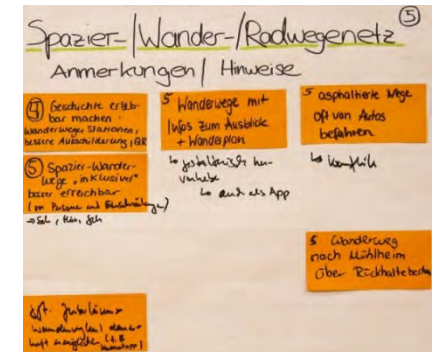 Spazier-/Wander-/Radwegenetz ⑤
Anmerkungen / Hinweise
④ Geschichte erleb-
bar machen
Wanderwege, Stationen,
bessere Ausschilderung, QR
⑤ Spazier-Wander-
wege "inklusiver"
besser erreichbar
→ Seh-, Hör-, Geh
5 Wanderwege mit
Infos zum Ausblick
+ Wanderplan
↳ auch als App
5 asphaltierte Wege
oft von Autos
befahren
↳ Konflikte
5 Wanderweg
nach Mühlheim
über Rückhaltebecken
Jubiläums